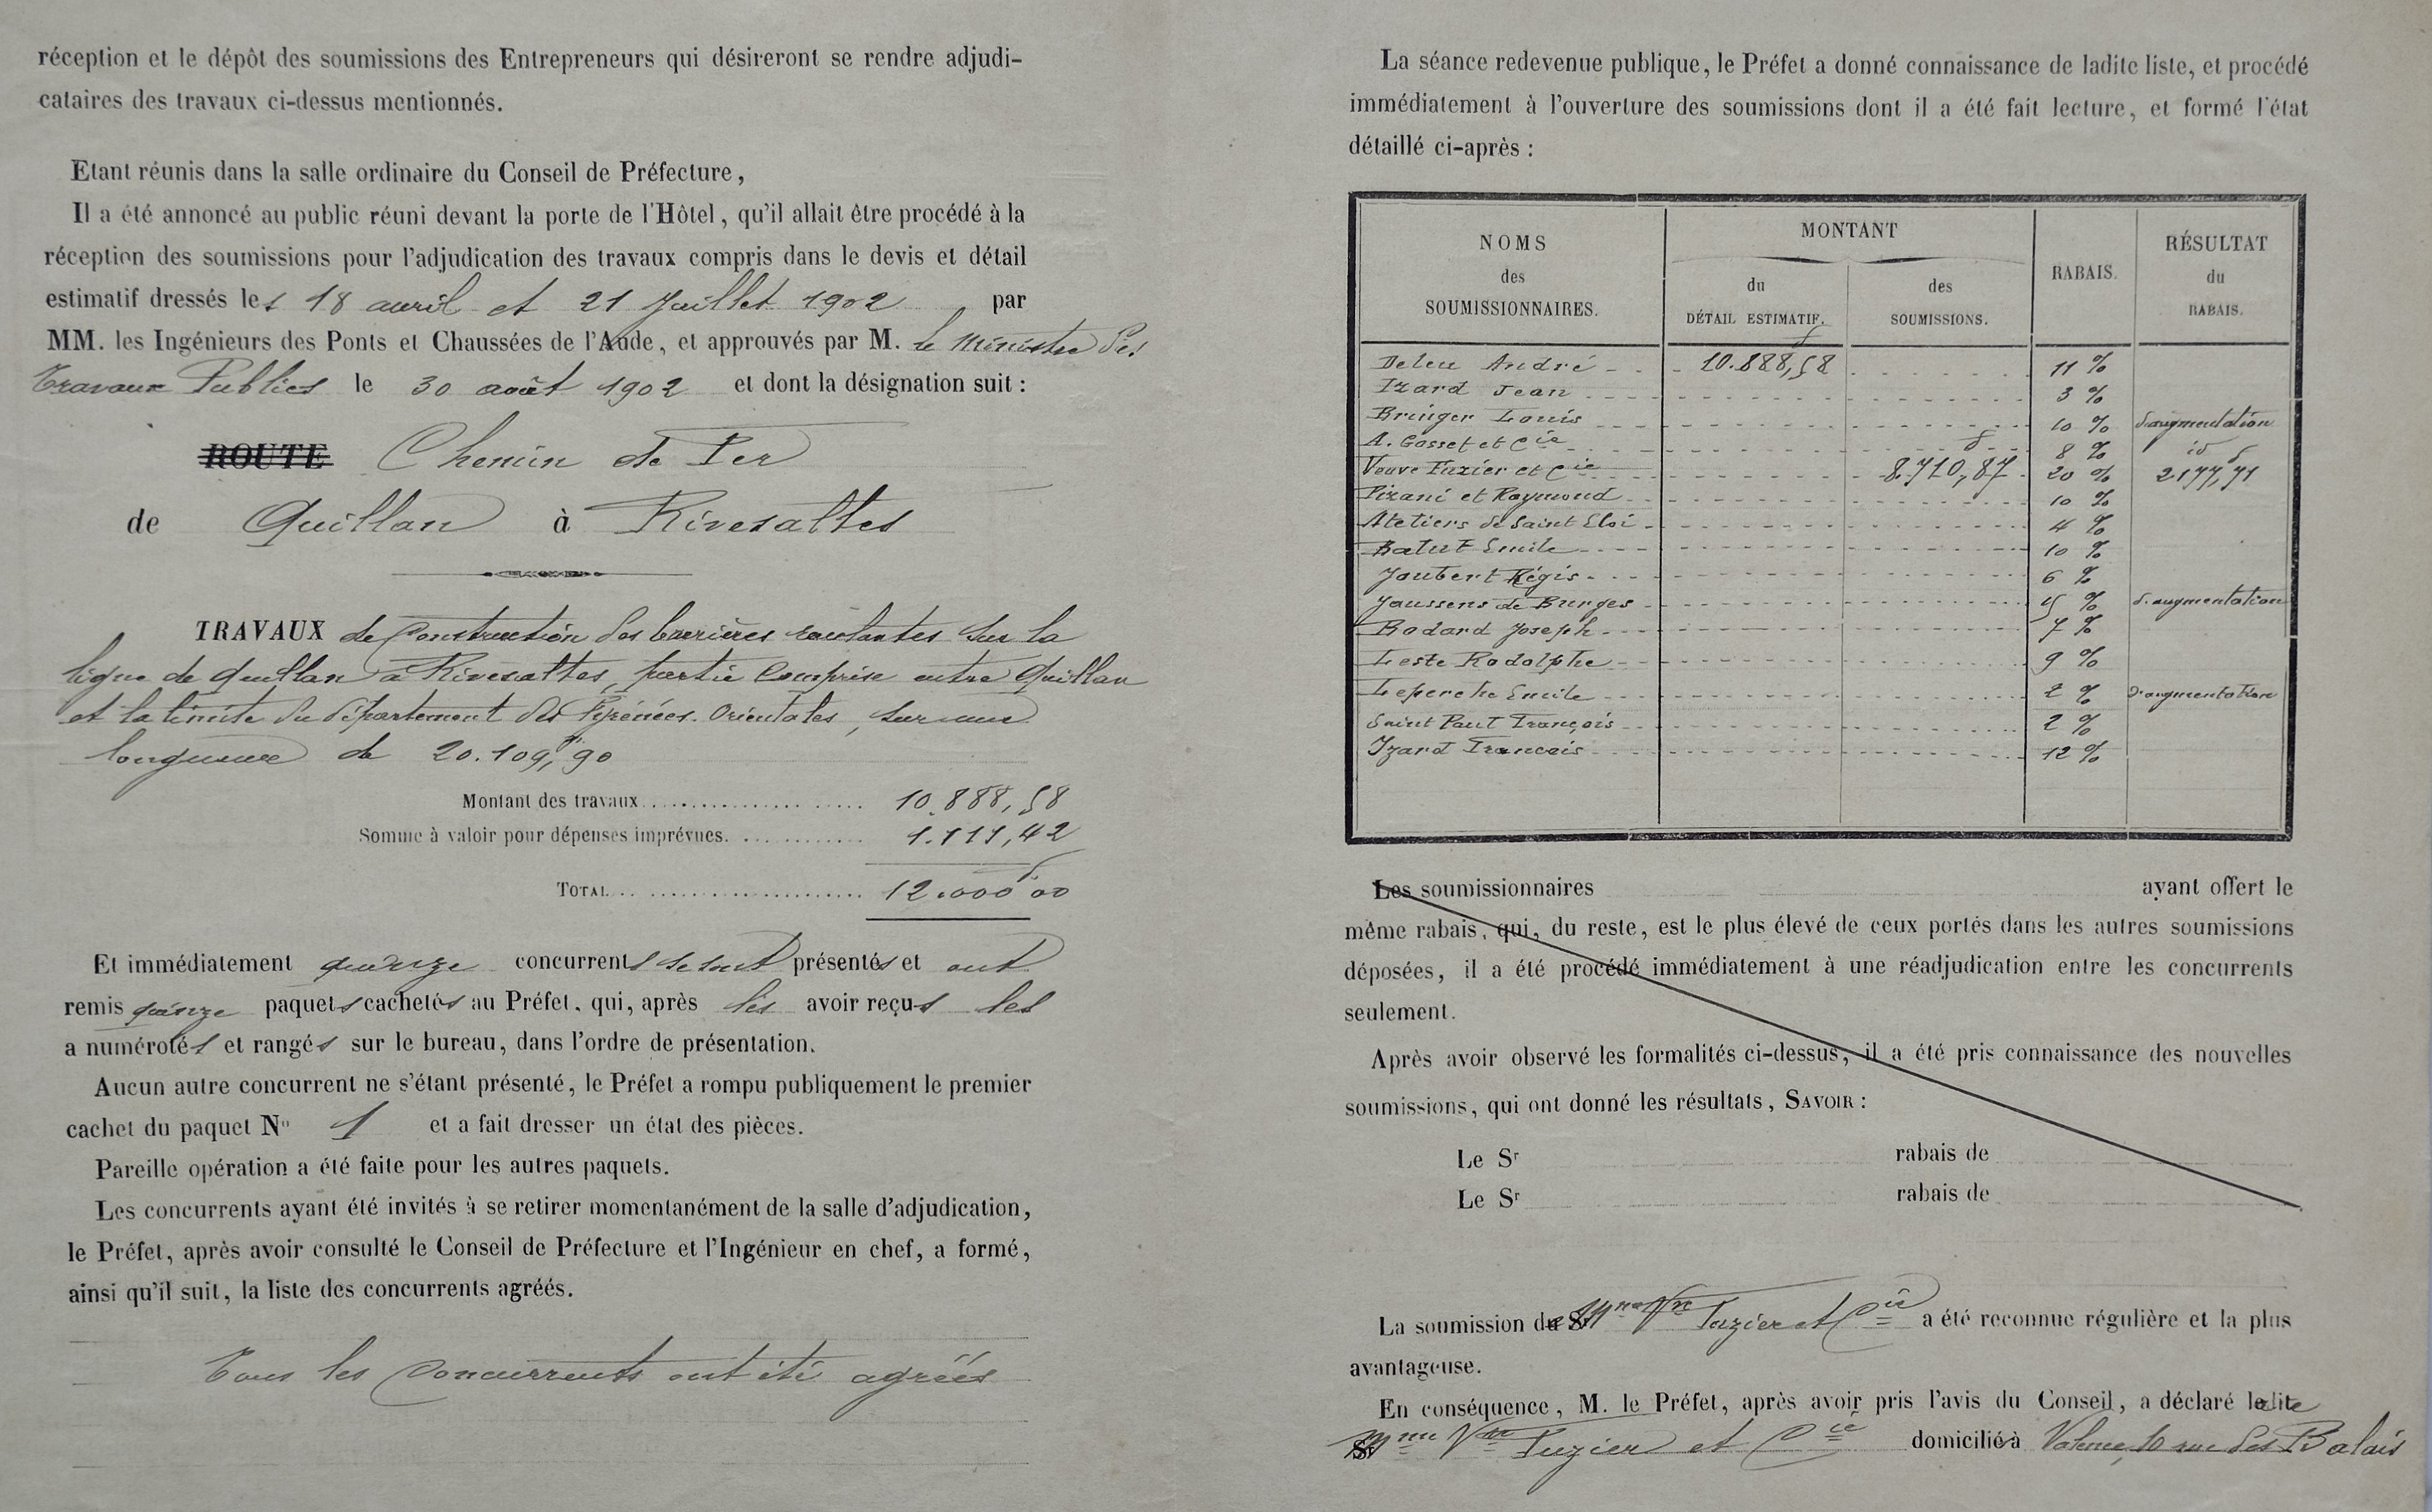 réception et le dépôt des soumissions des Entrepreneurs qui désireront se rendre adjudi-
cataires des travaux ci-dessus mentionnés.
Etant réunis dans la salle ordinaire du Conseil de Préfecture,
Il a été annoncé au public réuni devant la porte de l'Hôtel, qu'il allait être procédé à la
réception des soumissions pour l'adjudication des travaux compris dans le devis et détail
estimatif dressés les 18 avril et 21 Juillet 1902, par
MM. les Ingénieurs des Ponts et Chaussées de l'Aude, et approuvés par M. le Ministre des
Travaux Publics le 30 août 1902 et dont la désignation suit :
ROUTE Chemin de Fer
de Quillan à Rivesaltes
TRAVAUX de Construction des barrières roulantes sur la
ligne de Quillan à Rivesaltes, partie comprise entre Quillan
et la limite du département des Pyrénées-Orientales, sur une
longueur de 20.109,m90
Montant des travaux 10.888,58
Somme à valoir pour dépenses imprévues. 1.111,42
TOTAL 12.000f00
Et immédiatement quinze concurrents se sont présentés et ont
remis quinze paquets cachetés au Préfet, qui, après les avoir reçus les
a numérotés et rangés sur le bureau, dans l'ordre de présentation.
Aucun autre concurrent ne s'étant présenté, le Préfet a rompu publiquement le premier
cachet du paquet No 1 et a fait dresser un état des pièces.
Pareille opération a été faite pour les autres paquets.
Les concurrents ayant été invités à se retirer momentanément de la salle d'adjudication,
le Préfet, après avoir consulté le Conseil de Préfecture et l'Ingénieur en chef, a formé,
ainsi qu'il suit, la liste des concurrents agréés.
Tous les Concurrents ont été agréés
La séance redevenue publique, le Préfet a donné connaissance de ladite liste, et procédé
immédiatement à l'ouverture des soumissions dont il a été fait lecture, et formé l'état
détaillé ci-après :
NOMS des SOUMISSIONNAIRES. MONTANT du DÉTAIL ESTIMATIF. des SOUMISSIONS. RABAIS. RÉSULTAT du RABAIS.
Deleu André 10.888,f58 11 %
Izard Jean 3 %
Bringer Louis 10 % d'augmentation
A. Gosset et Cie 8 % id
Veuve Fuzier et Cie 8.710,f87 20 % 2177,f71
Pirani et Raymond 10 %
Ateliers de Saint Eloi 4 %
Batut Emile 10 %
Joubert Régis 6 %
Janssens de Burges 5 % d'augmentation
Rodard Joseph 7 %
Leste Rodolphe 9 %
Leperche Emile 2 % d'augmentation
Saint Paul François 2 %
Izard Francois 12 %
Les soumissionnaires ayant offert le
même rabais, qui, du reste, est le plus élevé de ceux portés dans les autres soumissions
déposées, il a été procédé immédiatement à une réadjudication entre les concurrents
seulement.
Après avoir observé les formalités ci-dessus, il a été pris connaissance des nouvelles
soumissions, qui ont donné les résultats, SAVOIR :
Le Sr rabais de
Le Sr rabais de
La soumission de Mme Vve Fuzier et Cie a été reconnue régulière et la plus
avantageuse.
En conséquence, M. le Préfet, après avoir pris l'avis du Conseil, a déclaré ladite
Mme Vve Fuzier et Cie domicilié à Valence, 10 rue des Balais